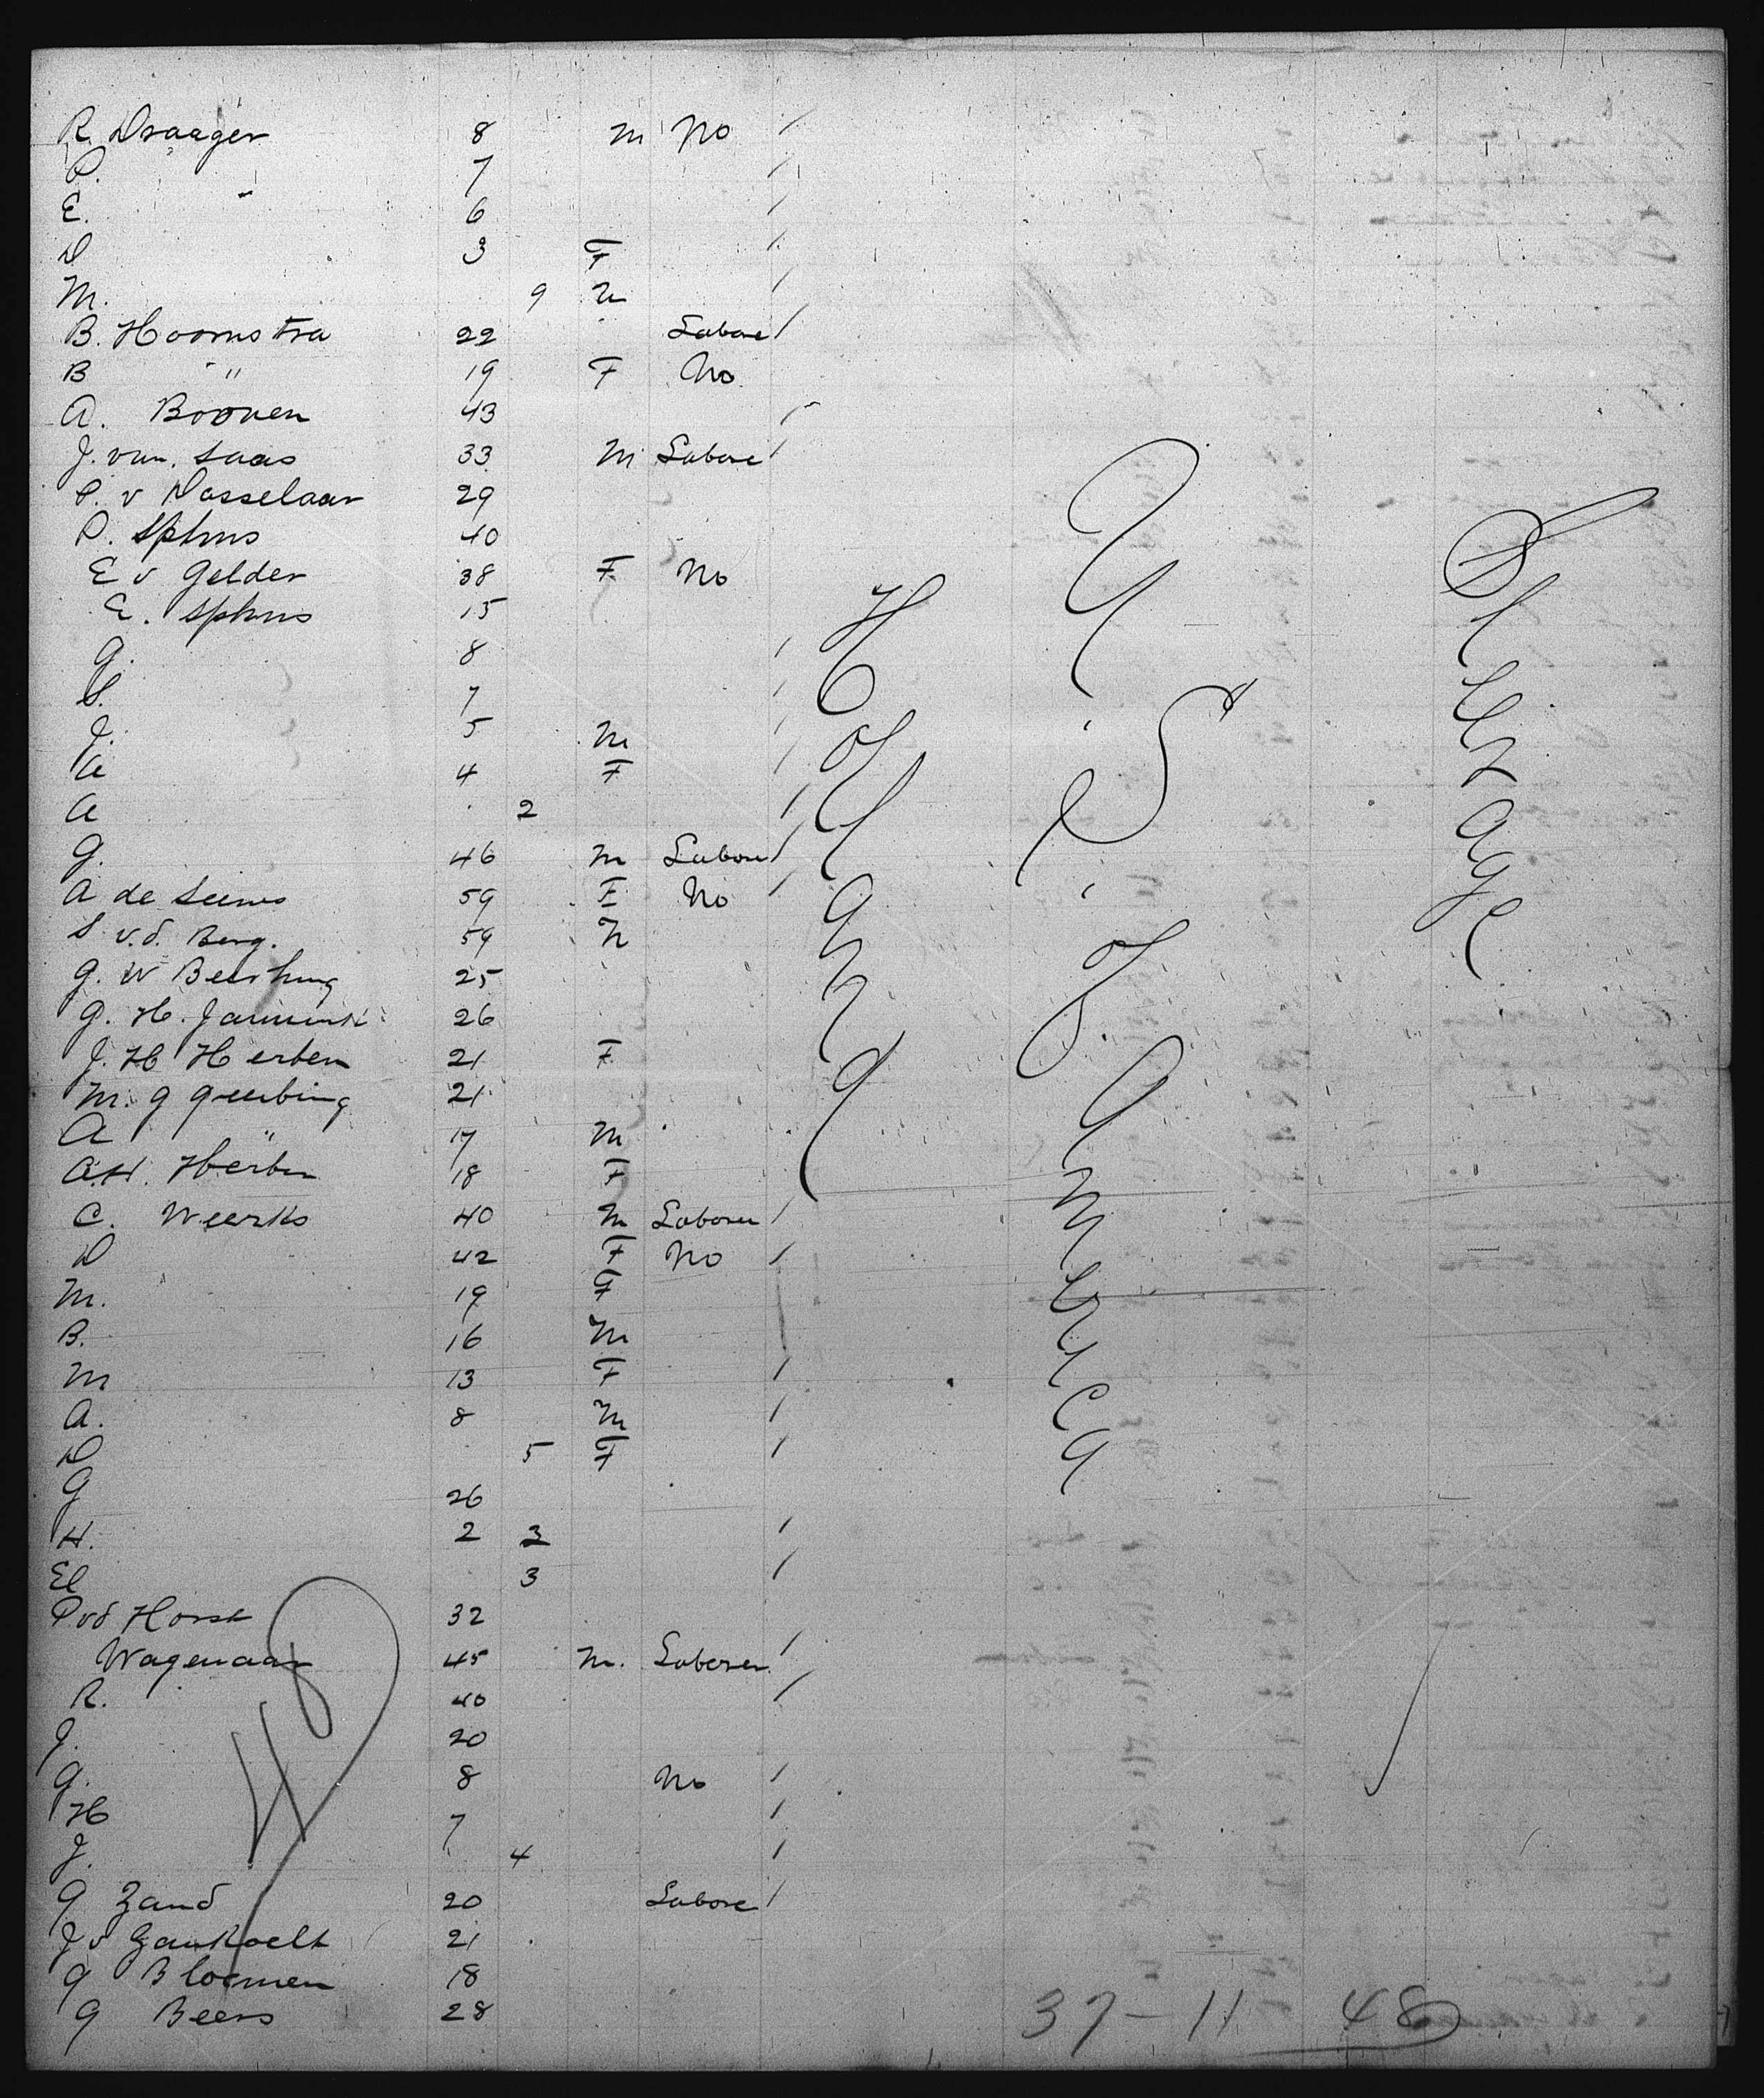 R. Draager 8 m No /
P. " 7 /
E. " 6 /
D 3 F /
M. 9 m /
B. Hoornstra 22 Labore /
B " 19 F No
A. Booven 43 /
J. van. Saas 33 M Labore /
P. v Dasselaar 29
P. Sphns 40
E v Gelder 38 F No
E. Sphns 15
G. 8 /
S. 7 /
J. 5 M /
A 4 F /
A 2 /
G. 46 m Labore /
A de Leeuw 59 F No /
S v.d. Berg. 59 M
G. W Beershing 25
G. H. Jannink 26
J. H Herben 21 F
M. G Geerbing 21
A " 17 M
A.H. Herben 18 F
C. Weerks 40 M Laborer /
D 42 F No /
M. 19 F
B. 16 M
M 13 F /
A. 8 M /
D 5 F /
G 26
H. 2 3 /
El 3 /
P vd Horst 32
Wagenaar 45 m. Laborer /
R. 40 /
J. 20
G. 8 No /
H 7 /
J. 4 /
G Zand 20 Labore /
J v Gaukoelt 21
G Bloemen 18
G Beers 28
HOLLAND
U.S. OF AMERICA
37 - 11 48